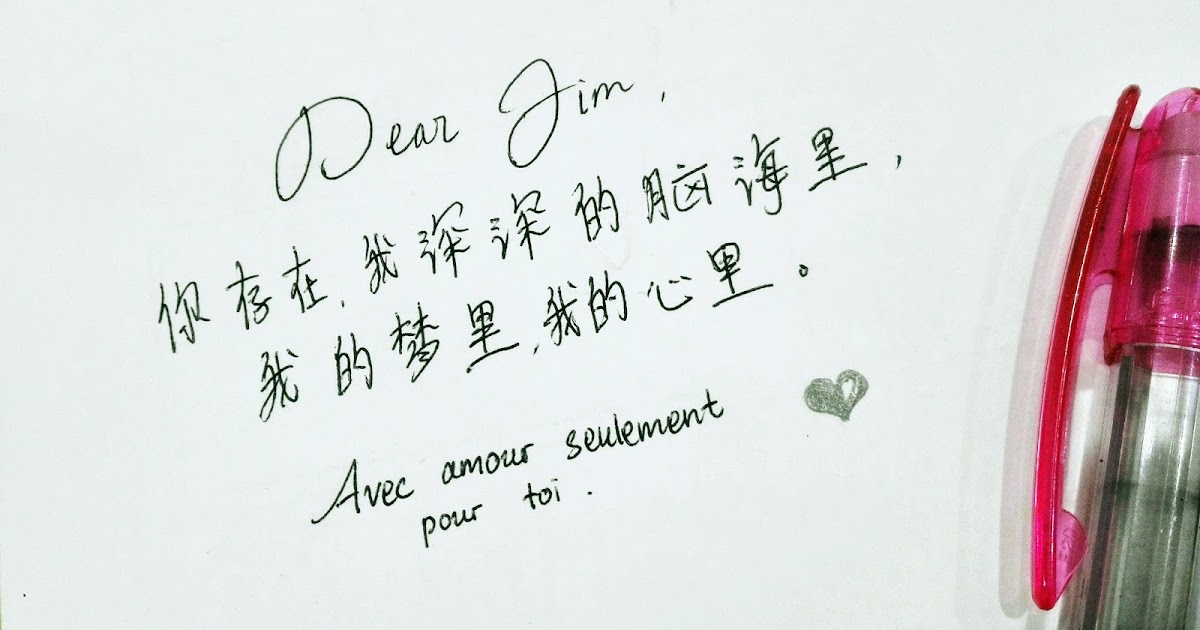 Dear Jim,
你存在,我深深的脑海里,
我的梦里,我的心里。
Avec amour seulement
pour toi.